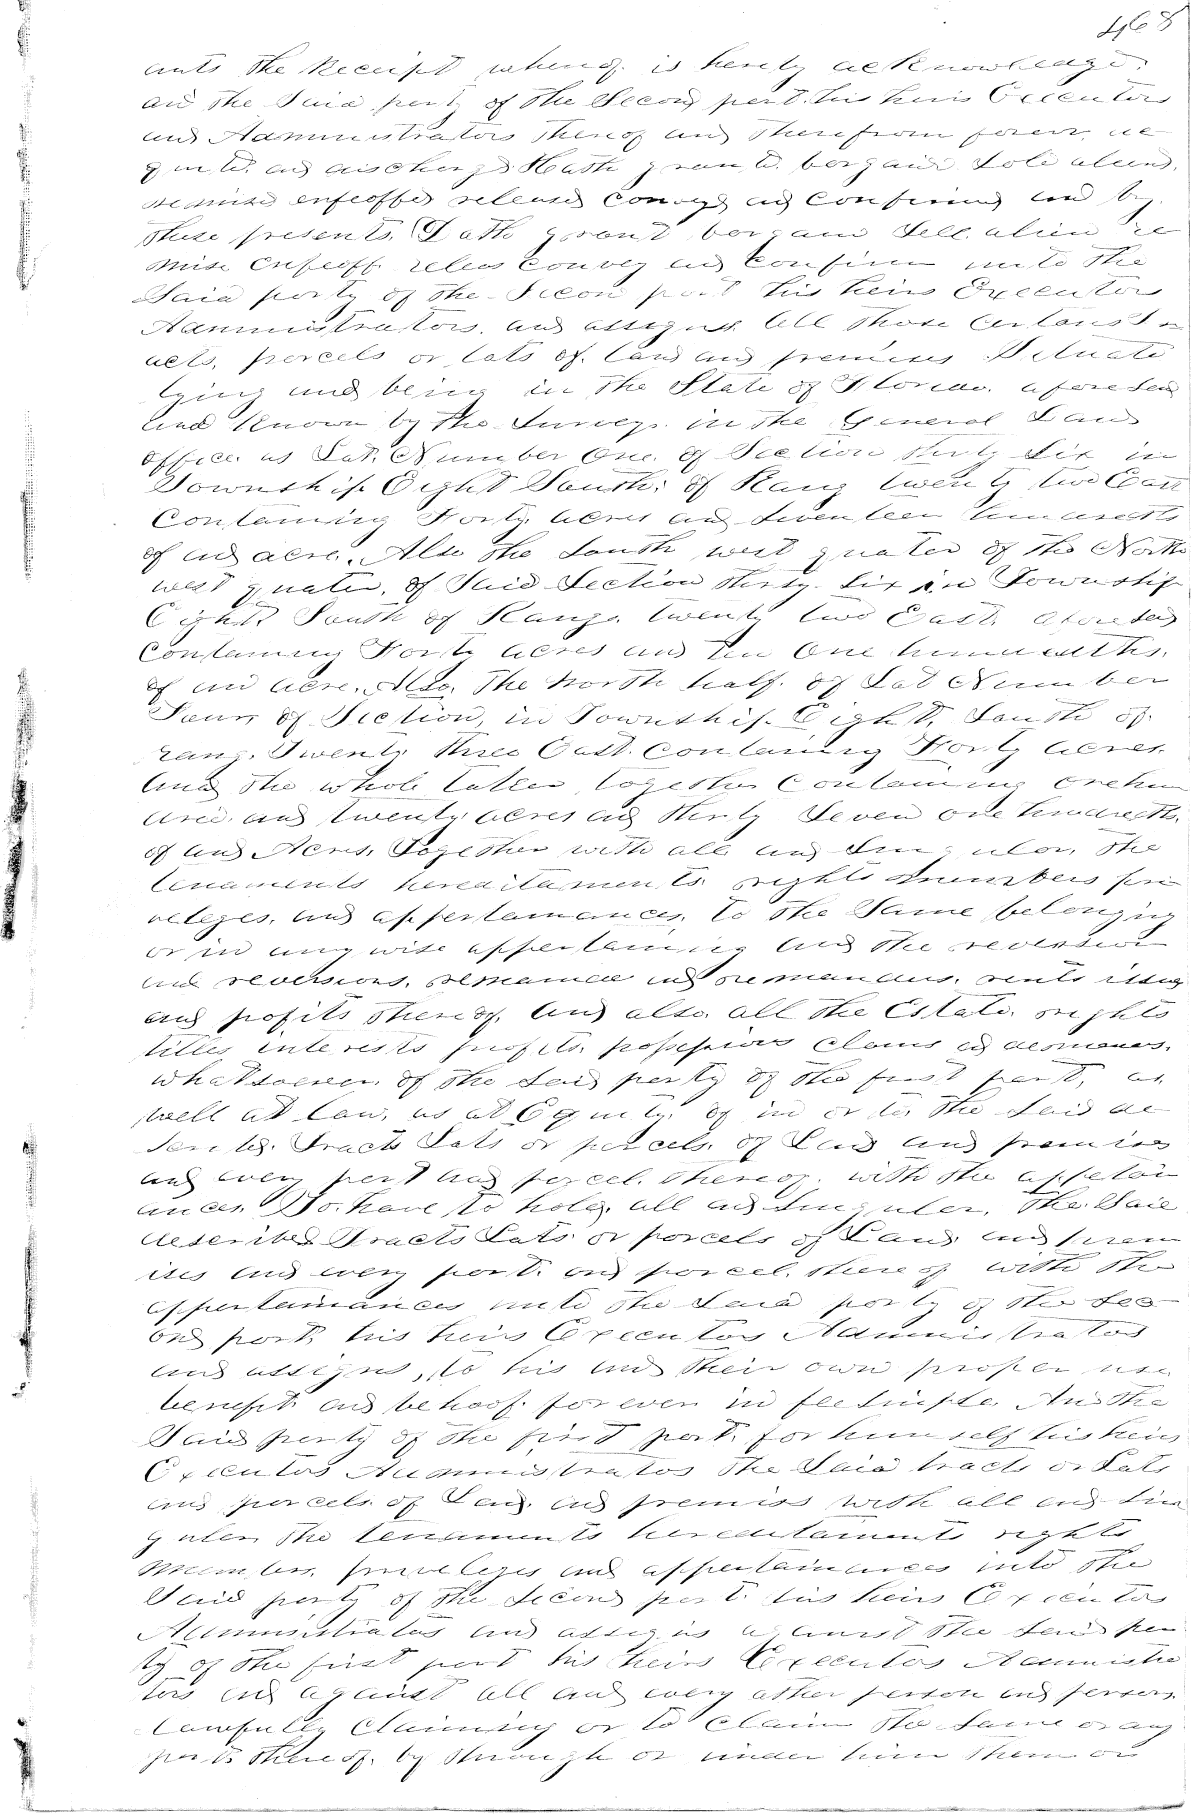 468
ants the Receipt whereof is hereby acknowledge.
and the Said party of the Second part. his heirs Executors
and Administrators thereof and therefrom forever ac
quits. and discharged Hath grants. bargain Sole alend.
remised enfeoffed released conveyd and confirmed and by.
these presents. Doth grant bargain Sell alien re
mise enfeoff. releas convey and confirm unto the
Said party of the Secon part his heirs Executors
Administrators. and assigns. All those certans tr
acts, parcels or lots of. land and premises Situate
lying and being in the State of Florida. aforesaid
and Known by the Surveys. in the General Land
office. as Lot. Number One. of Section thirty Six in
Township Eight South: of Rang twenty two East
Containing Forty. acres and Seventeen hundredths
of and acre. Also the South west quater of the North
west quater, of Said Section thirty. Six in Township
Eight South of Range. twenty two East. aforesaid
containing Forty acres and ten One hundredths.
of and acre. Also. The North half. of Lot Number
Four of Section, in Township. Eight, South of.
rang. Twenty three East. Containing Forty acres.
And the whole taken together Containing onehun
dred. and twenty acres and thirty Seven one hundredths.
of and Acres. Together with all and Singular, the
tenaments hereditaments. rights members pri
veleges. and appertainances, to the Same belonging
or in any wise appertaining And the reversion
and reversions. remainde and remainders. rents issues
and profits thereof. And also all the Estate. rights
titles interests profits. possessions claims and demands.
whatsoever of the Said party of the first part, as
well at law, as at Equity. of in or to. the Said de
scribed. Tracts Lots or parcels. of Land and premises
and every part and parcel. thereof. with the appetain
ances. To. have to hold. all and Singular, the Said
described Tracts Lots or parcels of Land and prem
ises and every part. and parcel. thereof with the
appertainances unto the Said party of the Sec
ond part, his heirs Executors Administrators
and assigns, to his and their own proper use
benefit and behoof. forever in fee Simple And the
Said party of the first part. for himself his heirs
Executors Administrators the Said tracts or Lots
and parcels. of Land. and premiss with all and Sin
gular the tenaments hereditaments rights
Members. priveleges and appertainances into the
Said party of the Second part. his heirs Executors
Administrators and assigns against the Said par
ty of the first part his heirs Executors Administra
tors and against all and every other person and persons
Lawfully Claiming or to Claim the Same or any
parts thereof. by through or under him Them or